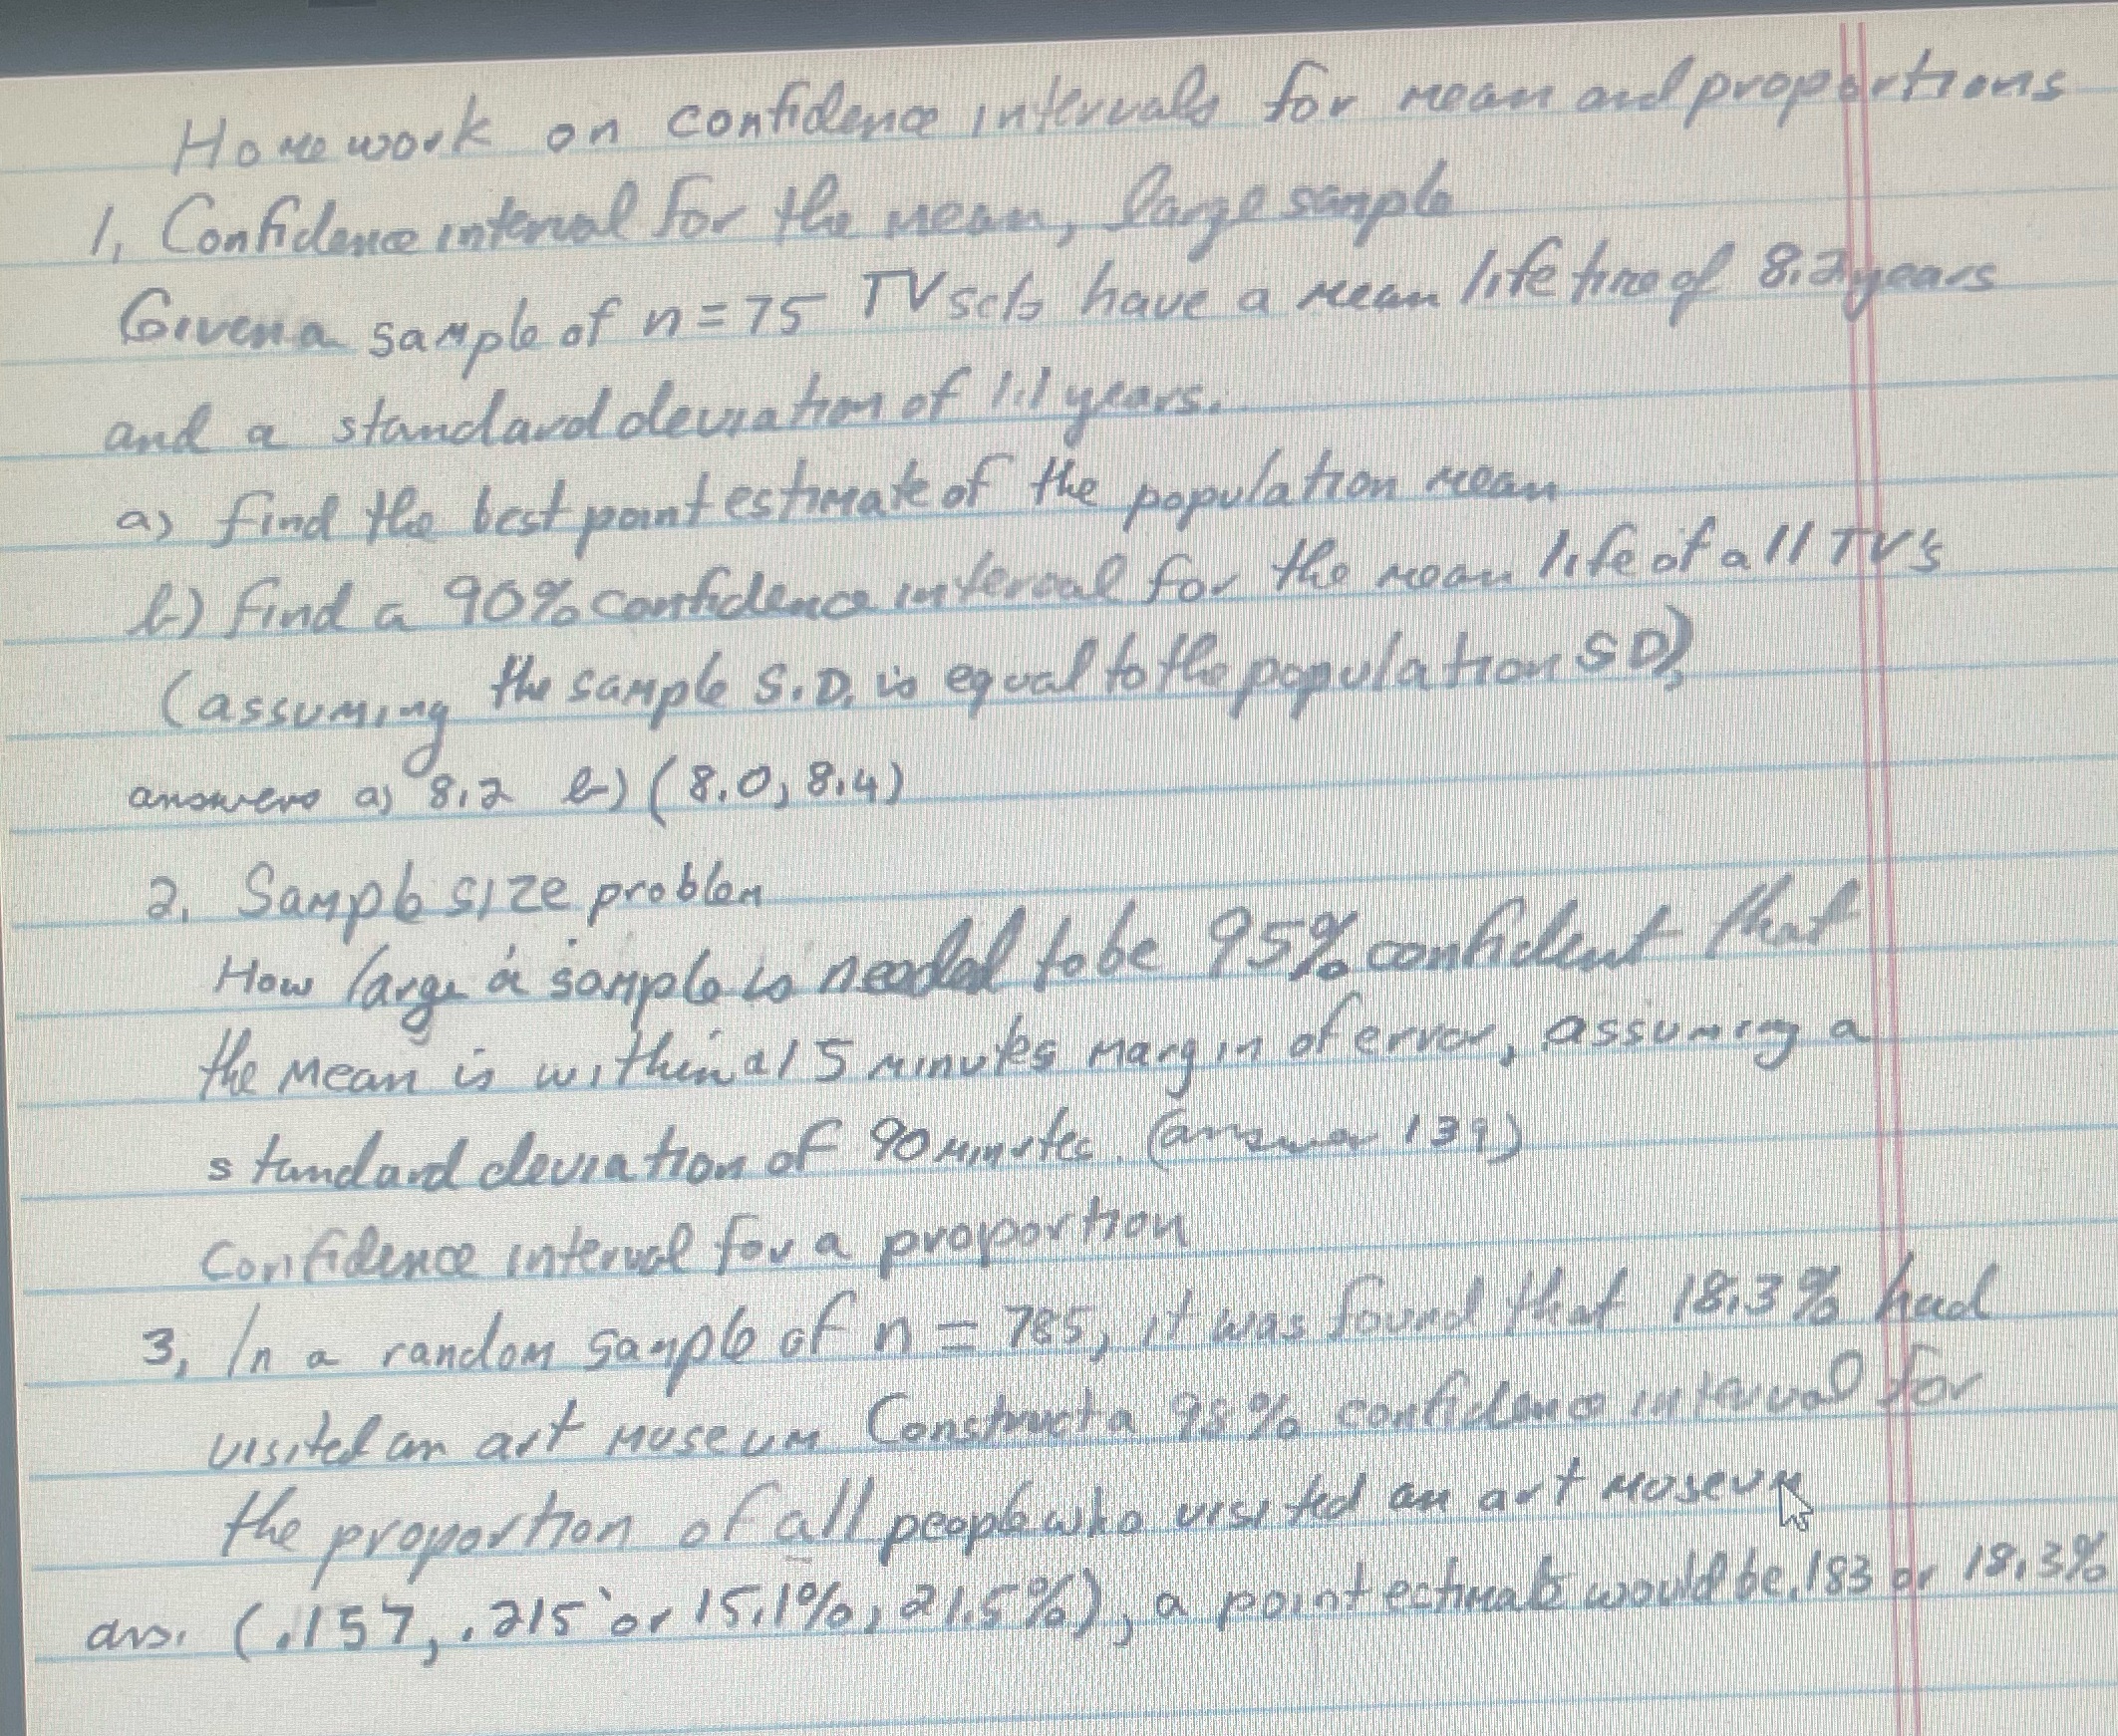 Homework on confidence intervals for mean and proportions
1, Confidence interval for the mean, large sample
Given a sample of n=75 TV sets have a mean life time of 8.2 years
and a standard deviation of 1.1 years.
a) find the best point estimate of the population mean
b) find a 90% confidence interval for the mean life of all TV's
(assuming the sample S.D. is equal to the population SD),
answers a) 8.2 b) (8.0, 8.4)
2. Sample size problem
How large a sample is needed to be 95% confident that
the mean is within a 15 minutes margin of error, assuming a
standard deviation of 90 minutes. (answer 139)
Confidence interval for a proportion
3, In a random sample of n = 785, it was found that 18.3% had
visited an art museum Construct a 98% confidence interval for
the proportion of all people who visited an art museum
ans. (.157, .215 or 15.1%, 21.5%), a point estimate would be .183 or 18.3%